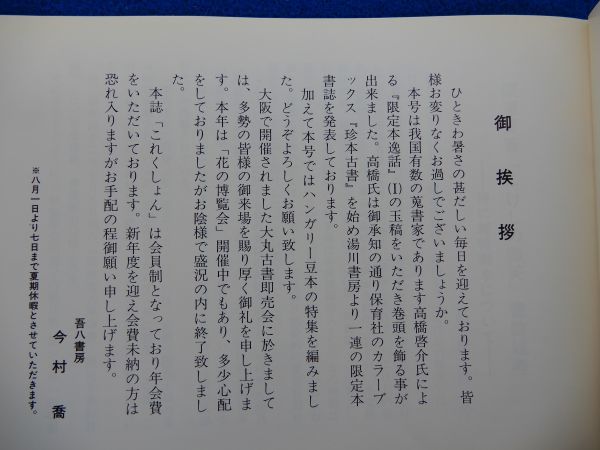 御挨拶
ひときわ暑さの甚だしい毎日を迎えております。皆
様お変りなくお過しでございましょうか。
本号は我国有数の蒐書家であります高橋啓介氏によ
る『限定本逸話』(I)の玉稿をいただき巻頭を飾る事が
出来ました。高橋氏は御承知の通り保育社のカラーブ
ックス『珍本古書』を始め湯川書房より一連の限定本
書誌を発表しております。
加えて本号ではハンガリー豆本の特集を編みまし
た。どうぞよろしくお願い致します。
大阪で開催されました大丸古書即売会に於きまして
は、多勢の皆様の御来場を賜り厚く御礼を申し上げま
す。本年は「花の博覧会」開催中でもあり、多少心配
をしておりましたがお陰様で盛況の内に終了致しまし
た。
本誌「これくしょん」は会員制となっており年会費
をいただいております。新年度を迎え会費未納の方は
恐れ入りますがお手配の程御願い申し上げます。
吾八書房
今村 喬
※八月一日より七日まで夏期休暇とさせていただきます。